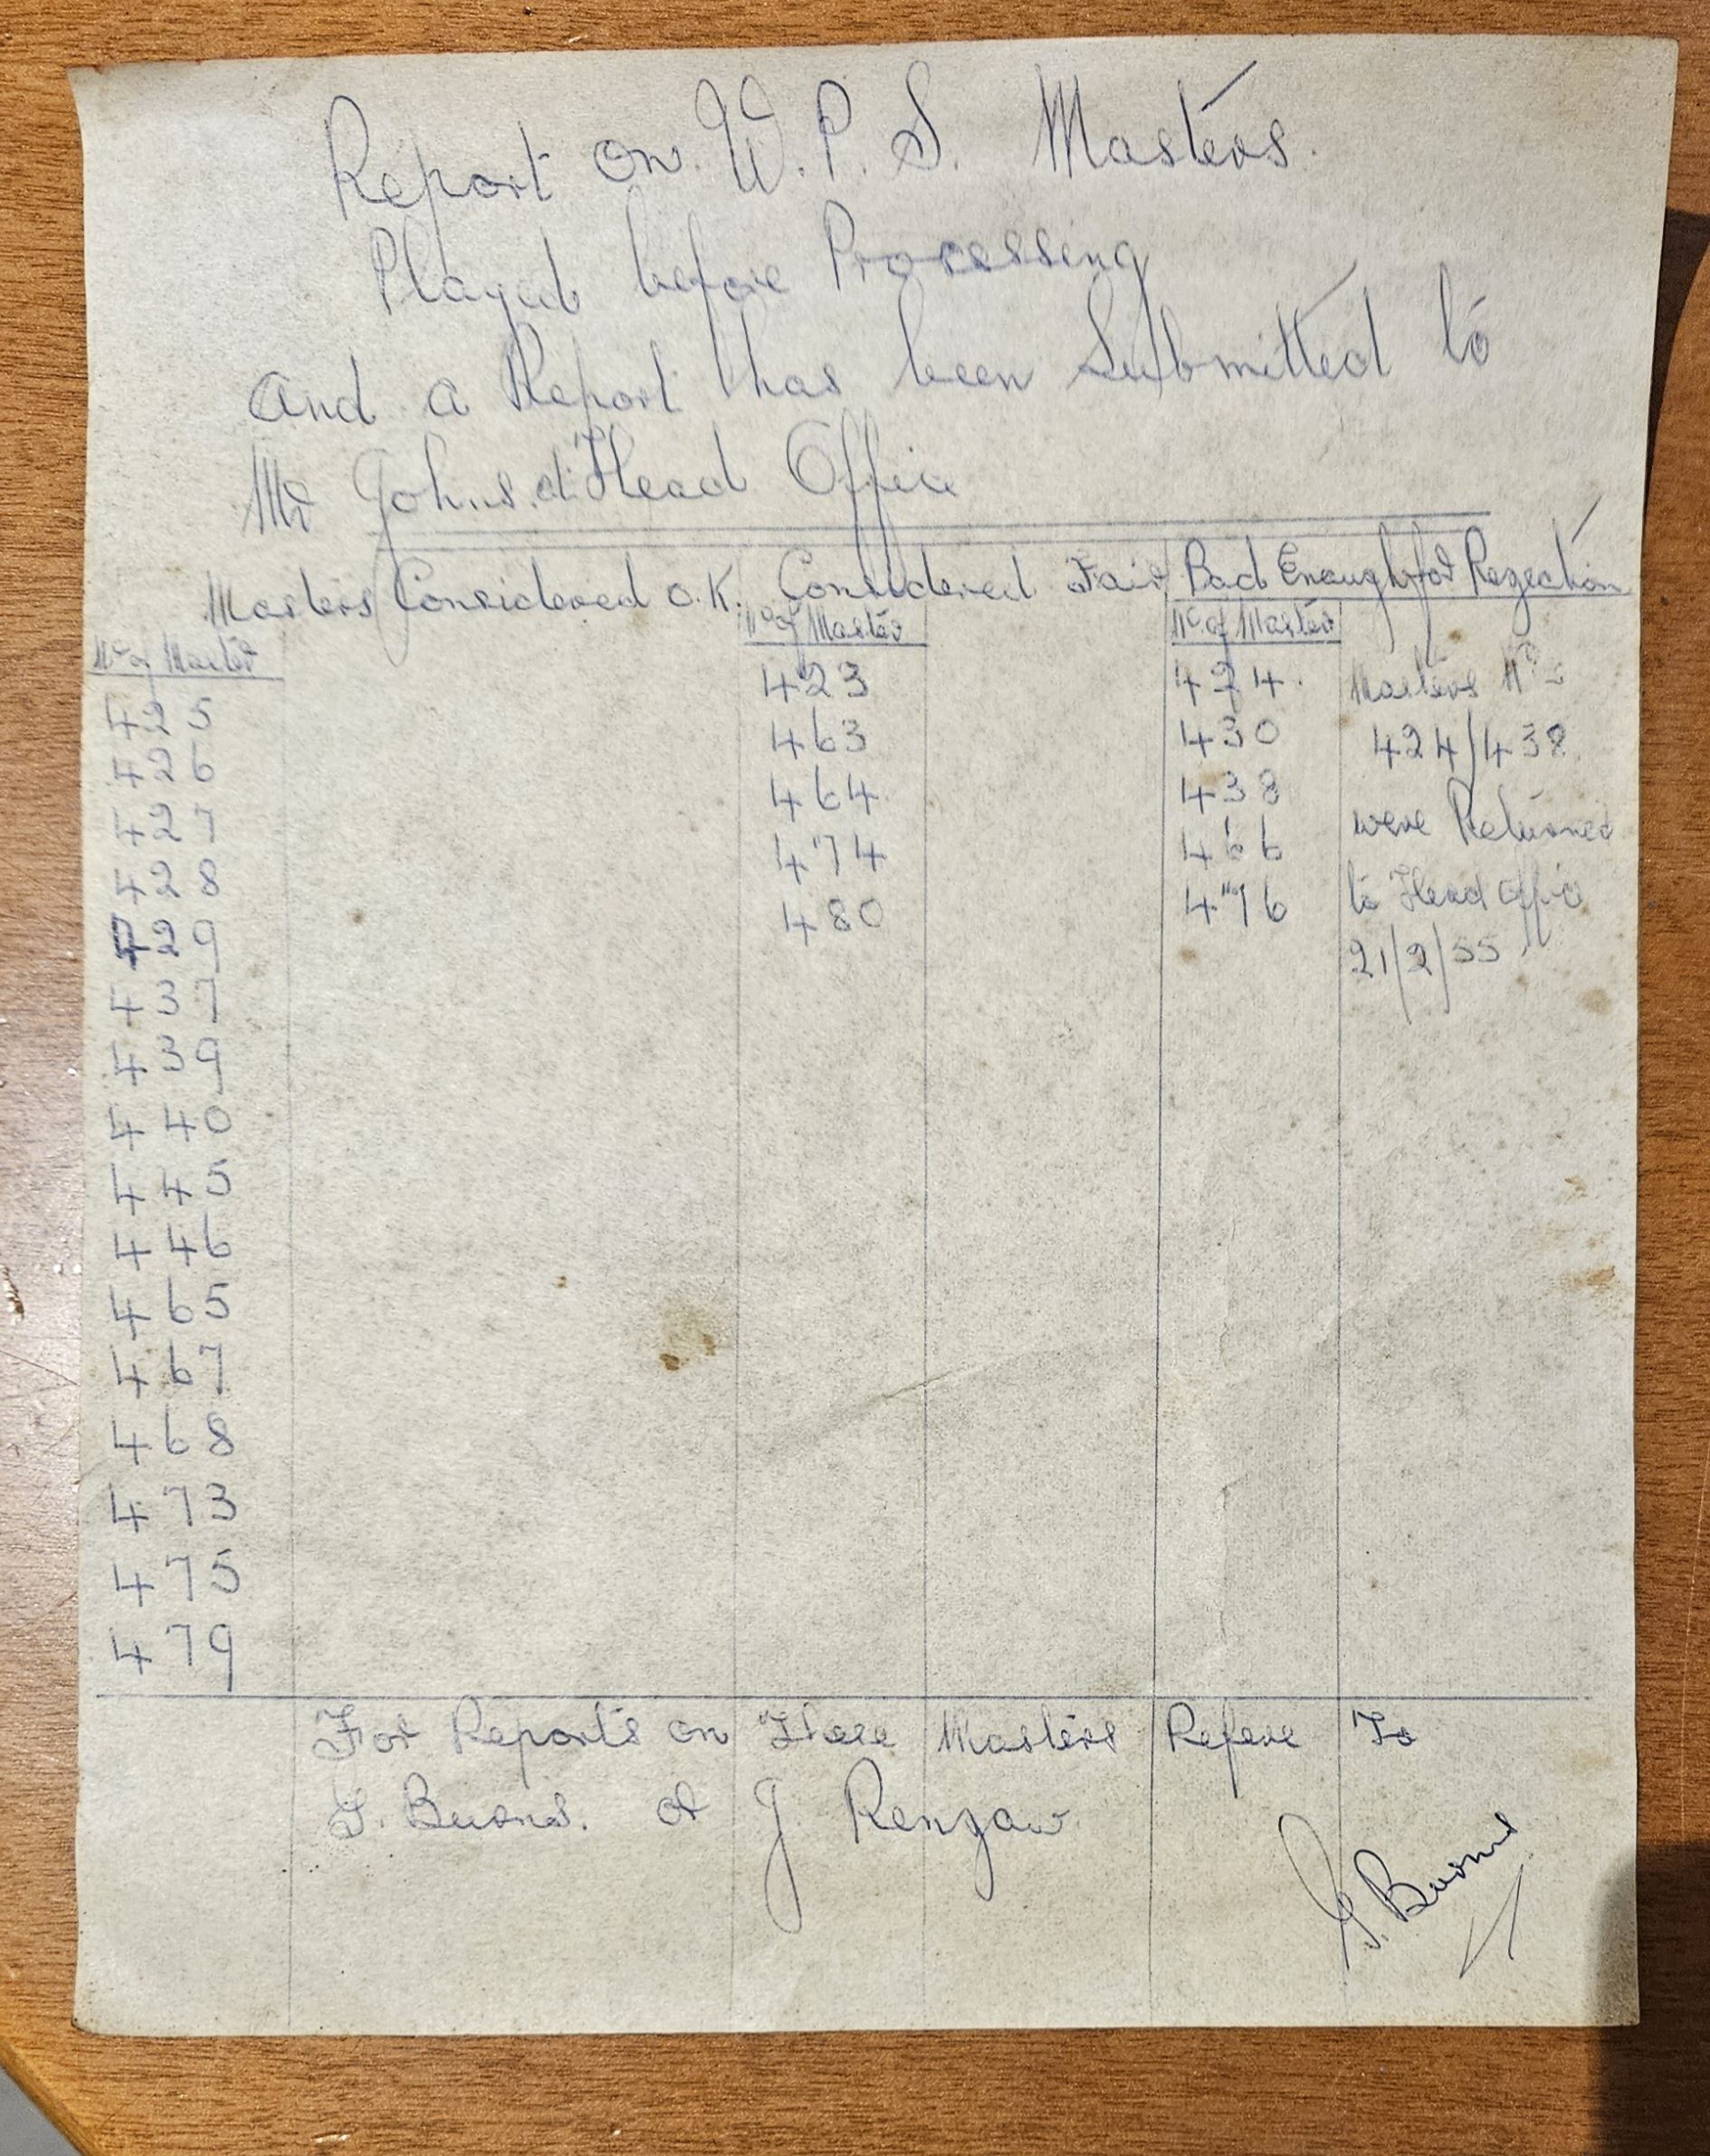 Report on W.P.S. Masters.
Played before Processing
and a Report has been Submitted to
Mr Johns. at Head Office
Masters Considered O.K. Considered Fair Bad Enough for Regection
No of Master
425
426
427
428
429
437
439
440
445
446
465
467
468
473
475
479
No of Master
423
463
464
474
480
No of Master
424.
430
438
466
476
Masters Nos
424/438
were Returned
to Head Office
21/2/55
For Reports on These Masters Refere To
G. Burns. or J Renzaw
G. Burns